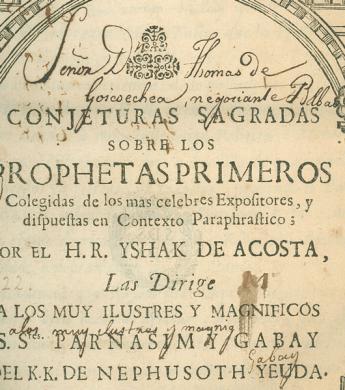 Señor Dn Thomas de
Goicoechea negociante Bilbao
CONJETURAS SAGRADAS
SOBRE LOS
PROPHETAS PRIMEROS
Colegidas de los mas celebres Expositores, y
dispuestas en Contexto Paraphrastico;
POR EL H. R. YSHAK DE ACOSTA,
22.
Las Dirige
A LOS MUY ILUSTRES Y MAGNIFICOS
alos muy ilustres y magnig
S.Stes. PARNASIM Y GABAY
Gabay
DEL K.K. DE NEPHUSOTH YEUDA.